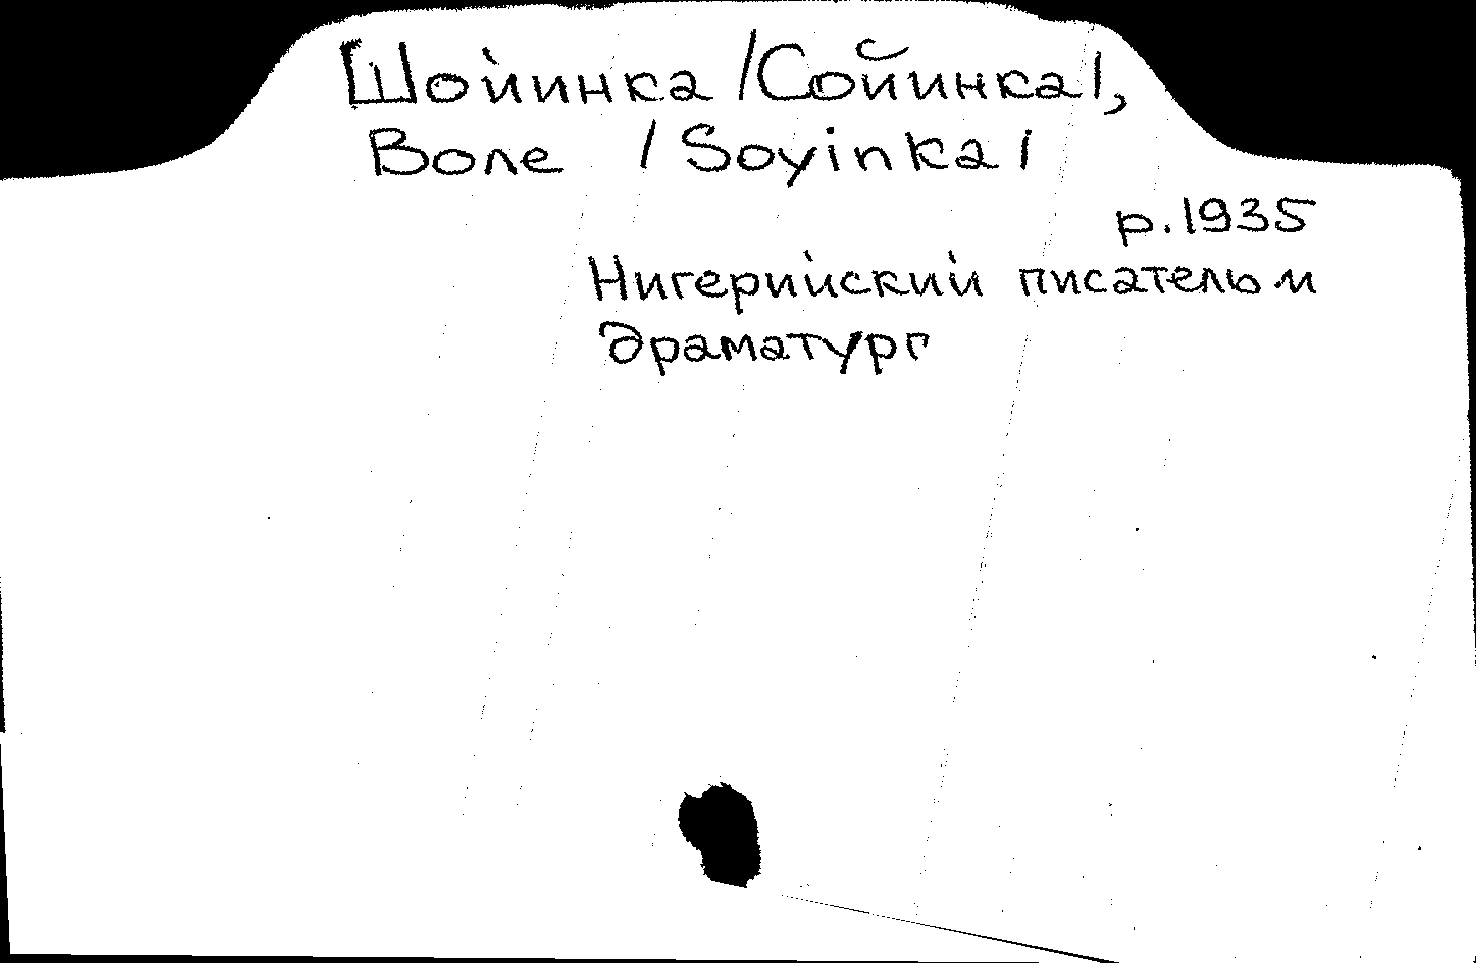 Шойинка /Сойинка/,
Воле / Soyinka /
р.1935
Нигерийский писатель и
драматург